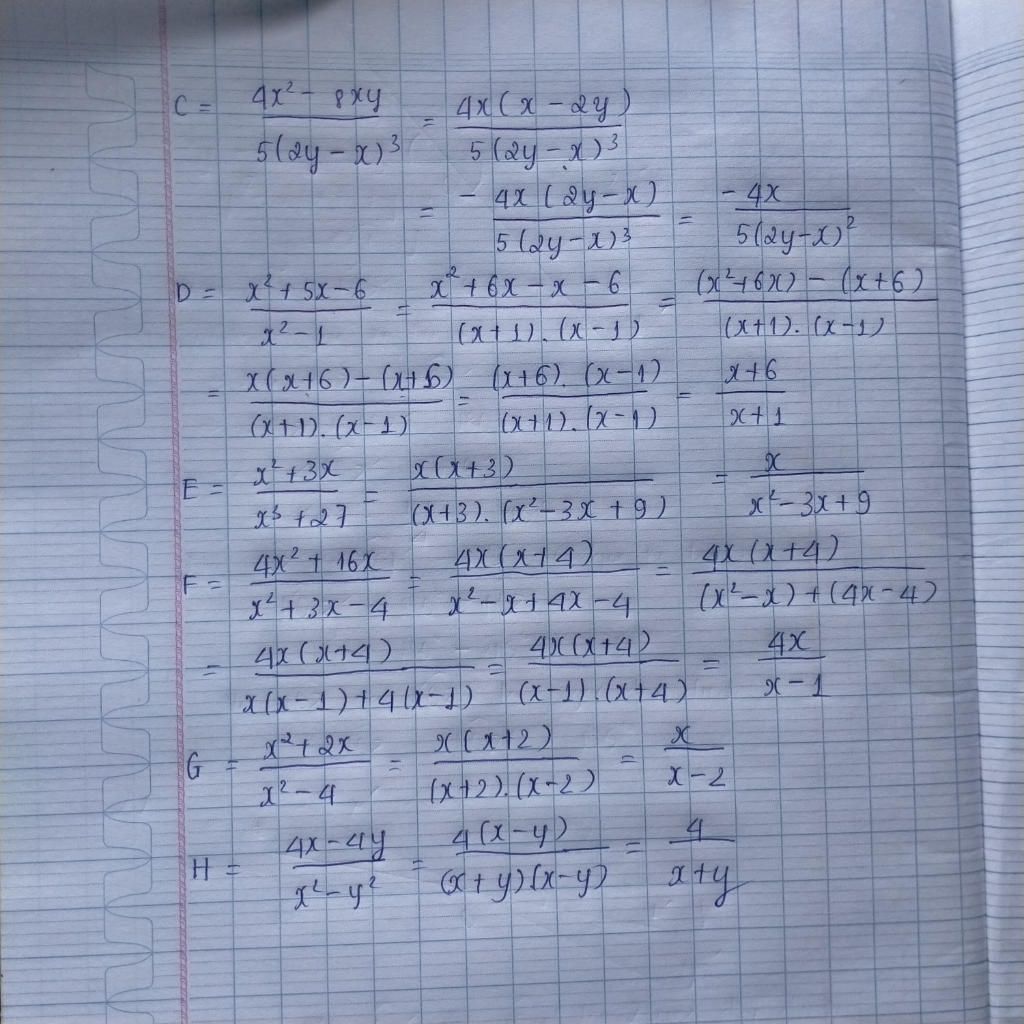 C = (4x² - 8xy)/(5(2y - x)³) = (4x(x - 2y))/(5(2y - x)³)
= - (4x(2y - x))/(5(2y - x)³) = (-4x)/(5(2y - x)²)
D = (x² + 5x - 6)/(x² - 1) = (x² + 6x - x - 6)/((x+1).(x-1)) = ((x² + 6x) - (x+6))/((x+1).(x-1))
= (x(x+6) - (x+6))/((x+1).(x-1)) = ((x+6).(x-1))/((x+1).(x-1)) = (x+6)/(x+1)
E = (x² + 3x)/(x³ + 27) = (x(x+3))/((x+3).(x² - 3x + 9)) = x/(x² - 3x + 9)
F = (4x² + 16x)/(x² + 3x - 4) = (4x(x+4))/(x² - x + 4x - 4) = (4x(x+4))/((x² - x) + (4x - 4))
= (4x(x+4))/(x(x-1) + 4(x-1)) = (4x(x+4))/((x-1).(x+4)) = 4x/(x-1)
G = (x² + 2x)/(x² - 4) = (x(x+2))/((x+2).(x-2)) = x/(x-2)
H = (4x - 4y)/(x² - y²) = (4(x-y))/((x+y)(x-y)) = 4/(x+y)